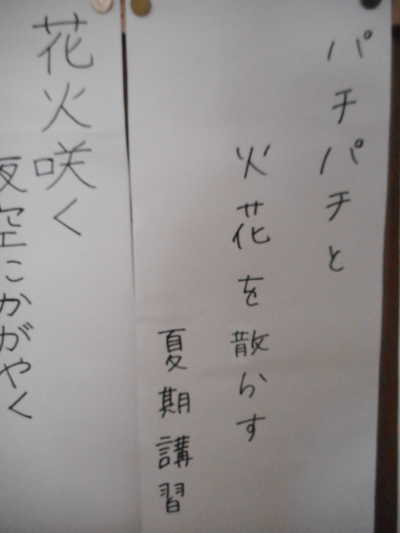 パチパチと
火花を散らす
夏期講習
花火咲く
夜空にかがやく